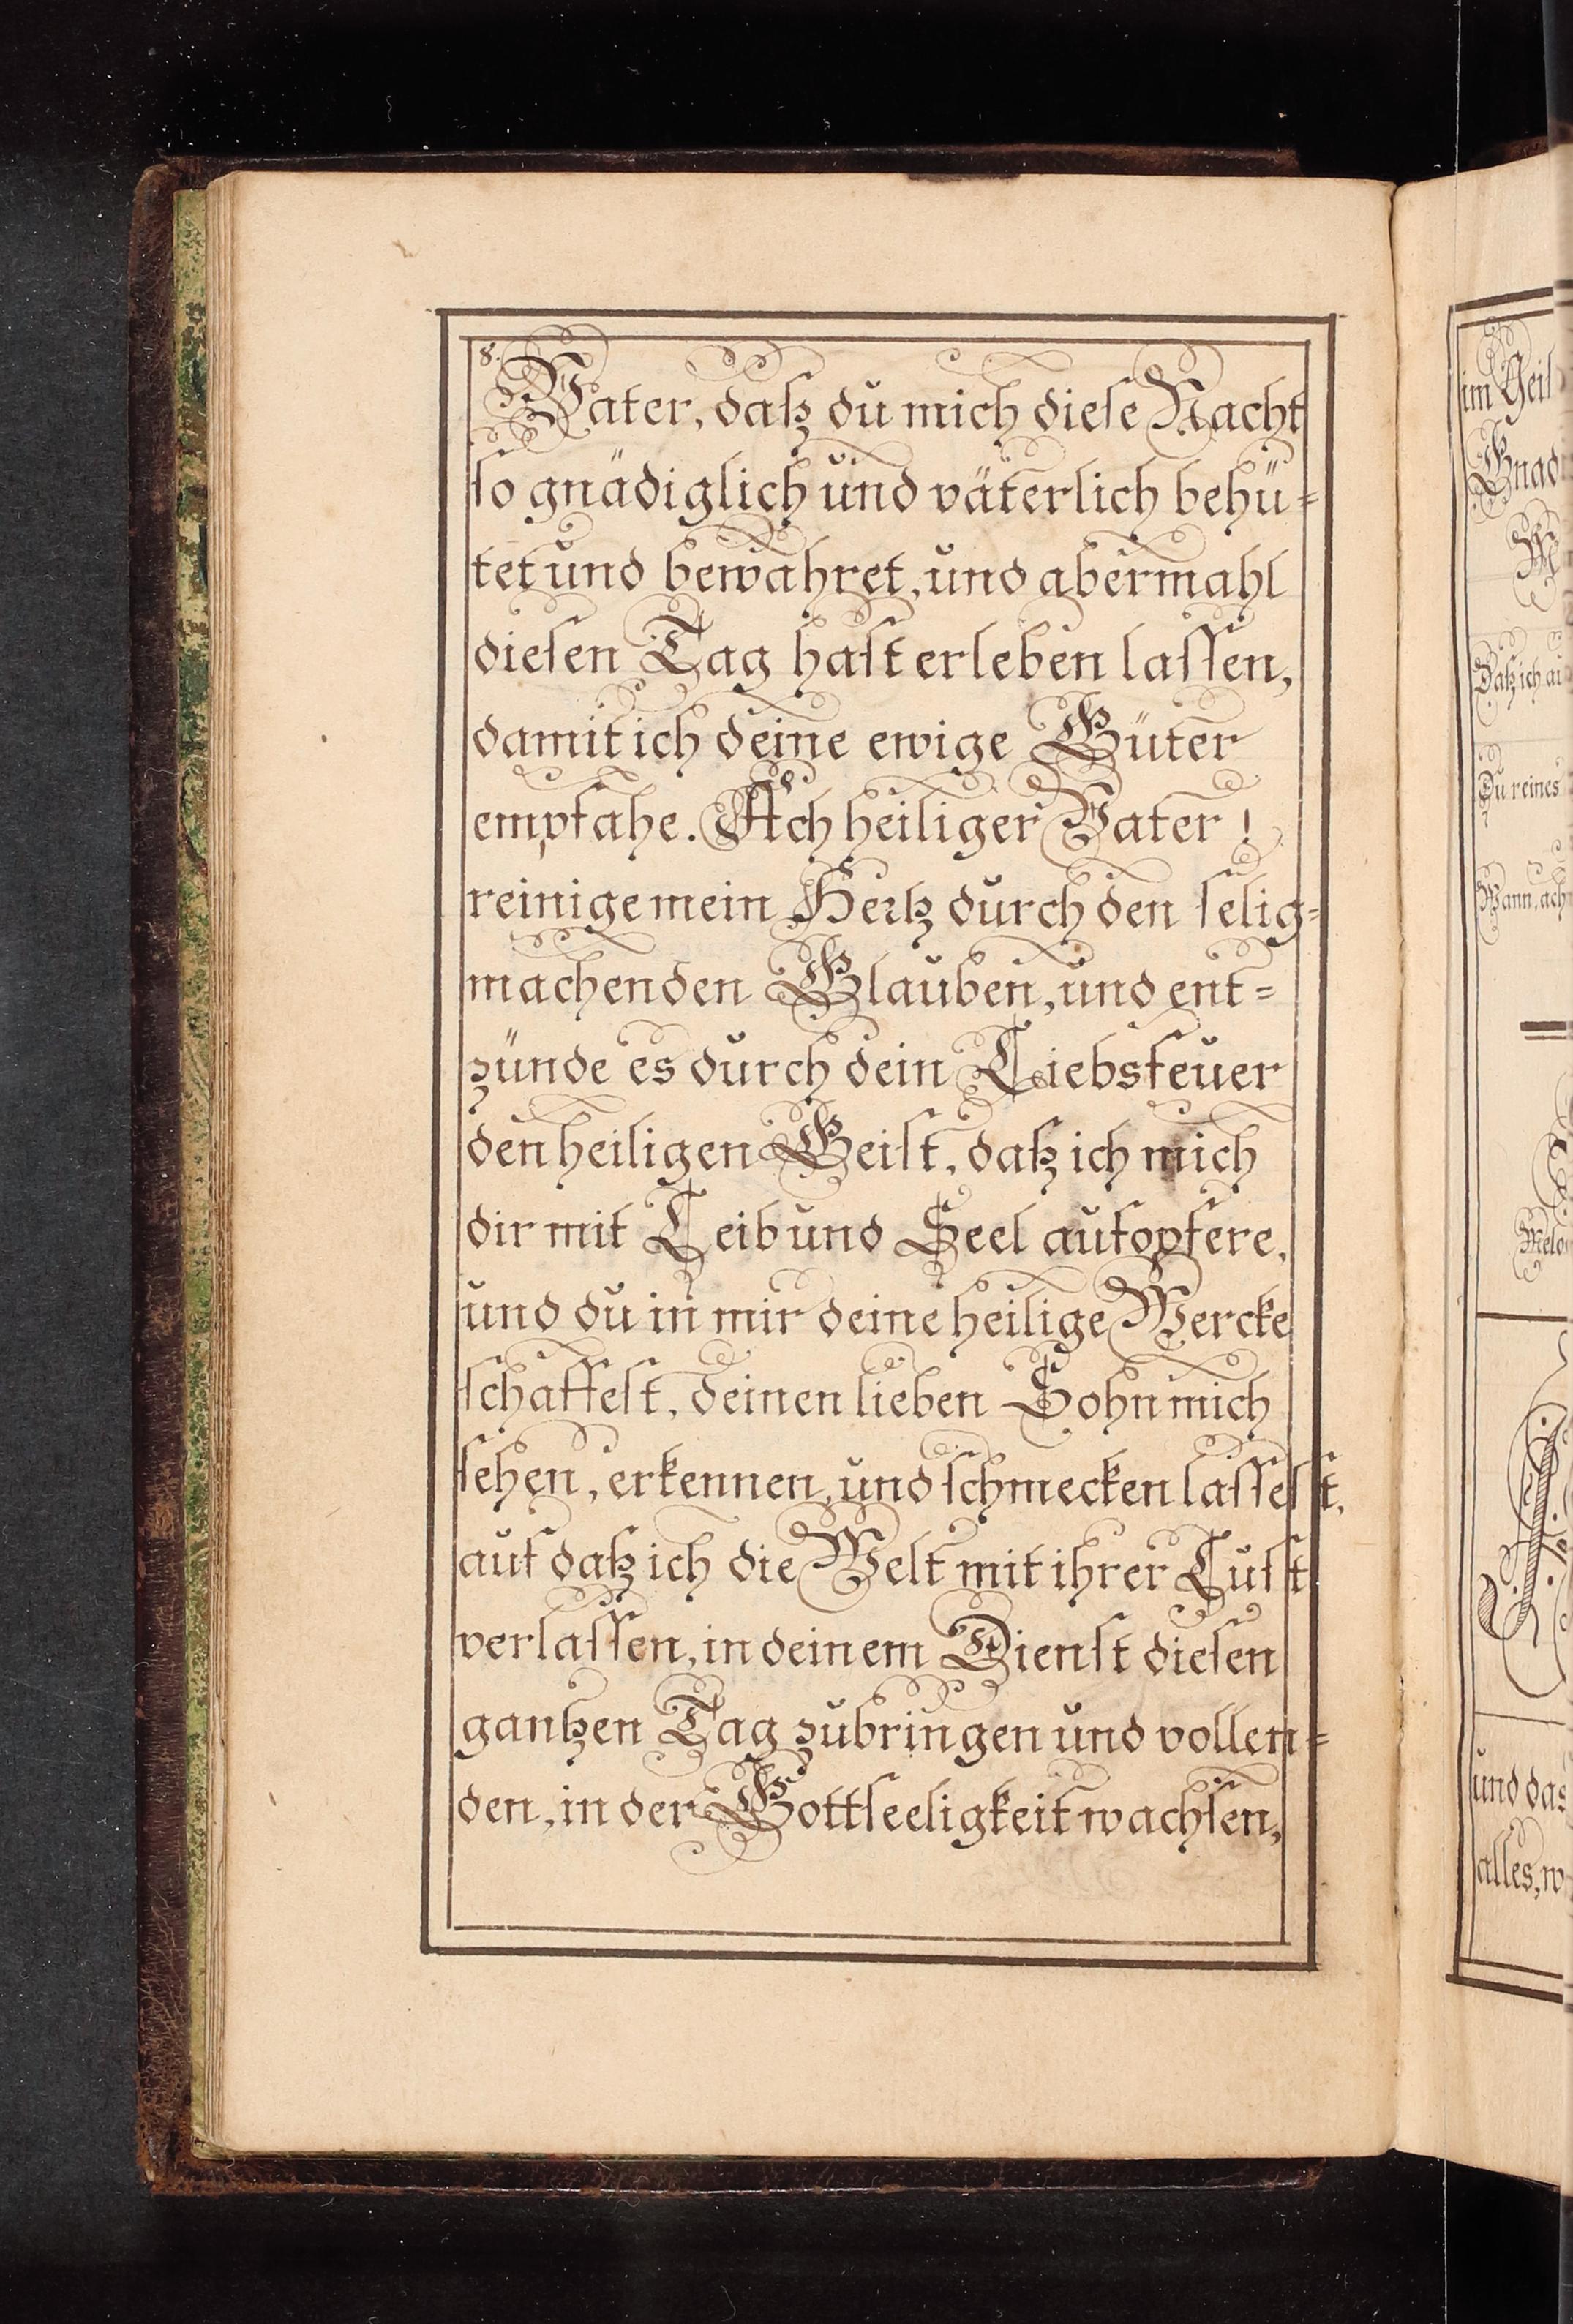 8.
Vater, daß du mich diese Nacht
so gnädiglich und väterlich behü=
tet und bewahret, und abermahl
diesen Tag hast erleben lassen,
damit ich deine ewige Güter
empfahe. Ach heiliger Vater!
reinige mein Hertz durch den selig=
machenden Glauben, und ent=
zünde es durch dein Liebsfeuer
den heiligen Geist, daß ich mich
dir mit Leib und Seel aufopfere,
und du in mir deine heilige Wercke
schaffest, deinen lieben Sohn mich
sehen, erkennen, und schmecken lassest,
auf daß ich die Welt mit ihrer Lust
verlassen, in deinem Dienst diesen
gantzen Tag zubringen und vollen=
den, in der Gottseeligkeit wachsen,
im Geis
Gnad
Daß ich au
Du reines
Wann, ach
Melo
und das
alles, w